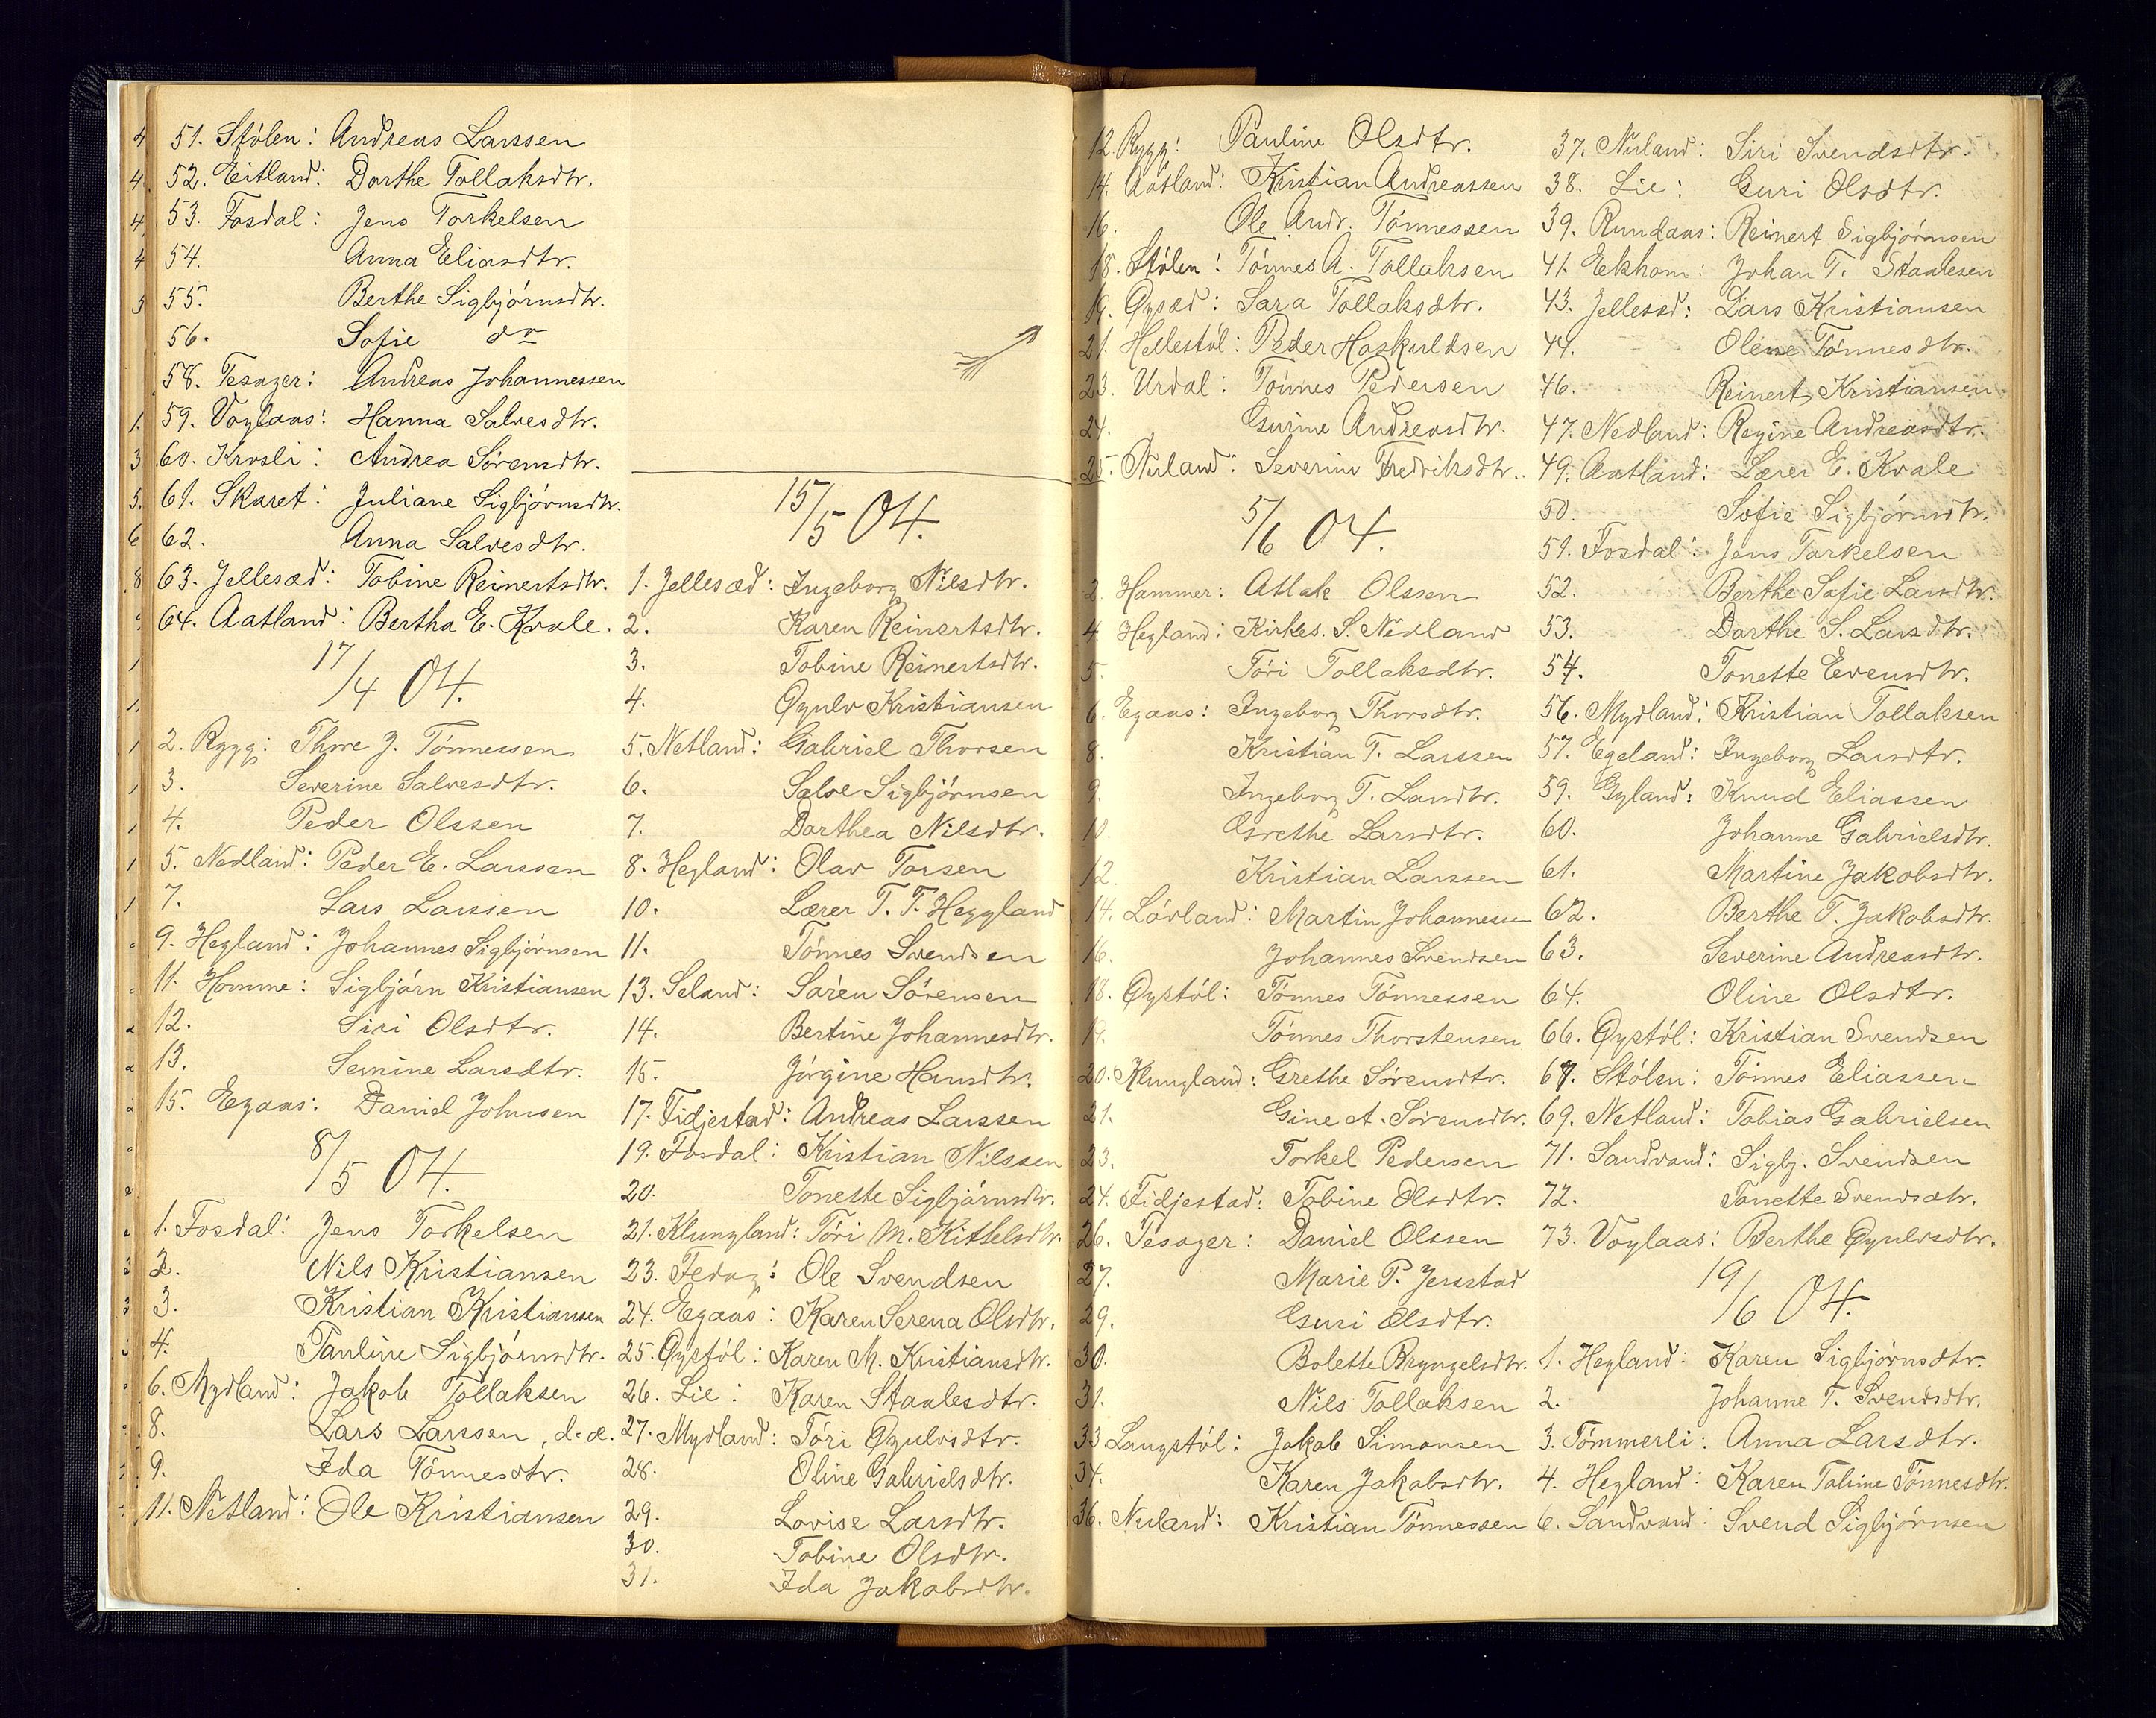 51. Stólen: Andreas Larssen
52. Eitland: Dorthe Tollaksdtr.
53. Fosdal: Jens Torkelsen
54. Anna Eliasdtr.
55. Berthe Sigbjórnsdtr.
56. Sofie do
58. Tesager: Andreas Johannessen
59. Voglaas: Hanna Salvesdtr.
60. Krosli: Andrea Sórensdtr.
61. Skaret: Juliane Sigbjórnsdtr.
62. Anna Salvesdtr.
63. Jellesæd: Tobine Reinertsdtr.
64. Aatland: Bertha E. Kvale.
17/4 04.
2. Rygg: Thore J. Tónnessen
3. Severine Salvesdtr.
4. Peder Olssen
5. Nedland: Peder E. Larssen
7. Lars Larssen
9. Hegland: Johannes Sigbjórnsen
11. Homme: Sigbjórn Kristiansen
12. Siri Olsdtr.
13. Semine Larsdtr.
15. Egaas: Daniel Johnsen
8/5 04.
1. Fosdal: Jens Torkelsen
2. Nils Kristiansen
3. Kristian Kristiansen
4. Pauline Sigbjórnsdtr.
6. Mydland: Jakob Tollaksen
8. Lars Larssen, d.æ.
9. Ida Tónnesdtr.
11. Netland: Ole Kristiansen
15/5 04.
1. Jellesæd: Ingeborg Nilsdtr.
2. Karen Reinertsdtr.
3. Tobine Reinertsdtr.
4. Øyulv Kristiansen
5. Netland: Gabriel Thorsen
6. Salve Sigbjórnsen
7. Dorthea Nilsdtr.
8. Hegland: Olav Torsen
10. Lærer T. T. Heggland
11. Tónnes Svendsen
13. Seland: Sóren Sórensen
14. Bertine Johannesdtr.
15. Jórgine Hansdtr.
17. Fidjestad: Andreas Larssen
19. Fosdal: Kristian Nilssen
20. Tonette Sigbjórnsdtr.
21. Klungland: Tóri M. Kittelsdtr.
23. Fedog: Ole Svendsen
24. Egaas: Karen Serena Olsdtr.
25. Øystól: Karen M. Kristiansdtr.
26. Lie: Karen Staalesdtr.
27. Mydland: Tóri Øyulvsdtr.
28. Oline Gabrielsdtr.
29. Lovise Larsdtr.
30. Tobine Olsdtr.
31. Ida Jakobsdtr.
12. Rygg: Pauline Olsdtr.
14. Aatland: Kristian Andreassen
16. Ole Andr. Tónnessen
18. Stólen: Tónnes A. Tollaksen
19. Øysæd: Sara Tollaksdtr.
21. Hellestól: Peder Haskuldsen
23. Urdal: Tónnes Pedersen
24. Gurine Andreasdtr.
25. Nuland: Severine Fredriksdtr.
5/6 04.
2. Hammer: Atlak Olssen
4. Hegland: Kirkes. S. Nedland
5. Tóri Tollaksdtr.
6. Egaas: Ingeborg Thorsdtr.
8. Kristian T. Larssen
9. Ingeborg T. Larsdtr.
10. Grethe Larsdtr.
12. Kristian Larssen
14. Lóvland: Martin Johannessen
16. Johannes Svendsen
18. Øystól: Tónnes Tónnessen
19. Tónnes Thorstensen
20. Klungland: Grethe Sórensdtr.
21. Gine A. Sórensdtr.
23. Torkel Pedersen
24. Fidjestad: Tobine Olsdtr.
26. Tesager: Daniel Olssen
27. Marie P. Jerstad
29. Guri Olsdtr.
30. Bolette Bryngelsdtr.
31. Nils Tollaksen
33. Langstól: Jakob Simonsen
34. Karen Jakobsdtr.
36. Nuland: Kristian Tónnessen
37. Nuland: Siri Svendsdtr.
38. Lie: Guri Olsdtr.
39. Rundaas: Reinert Sigbjórnsen
41. Eekhom: Johan T. Staalesen
43. Jellesæd: Lars Kristiansen
44. Olene Tónnesdtr.
46. Reinert Kristiansen
47. Nedland: Regine Andreasdtr.
49. Aatland: Lærer E. Kvale
50. Sofie Sigbjórnsdtr.
51. Fosdal: Jens Torkelsen
52. Berthe Sofie Larsdtr.
53. Dorthe S. Larsdtr.
54. Tonette Evensdtr.
56. Mydland: Kristian Tollaksen
57. Egeland: Ingeborg Larsdtr.
59. Gyland: Knud Eliassen
60. Johanne Gabrielsdtr.
61. Martine Jakobsdtr.
62. Berthe T. Jakobsdtr.
63. Severine Andreasdtr.
64. Oline Olsdtr.
66. Øystól: Kristian Svendsen
67. Stólen: Tónnes Eliassen
69. Netland: Tobias Gabrielsen
71. Sandvand: Sigbj. Svendsen
72. Tonette Svendsdtr.
73. Voglaas: Berthe Øyulvsdtr.
19/6 04.
1. Hegland: Karen Sigbjórnsdtr.
2. Johanne T. Svendsdtr.
3. Tómmerli: Anna Larsdtr.
4. Hegland: Karen Tobine Tónnesdtr.
6. Sandvand: Svend Sigbjórnsen